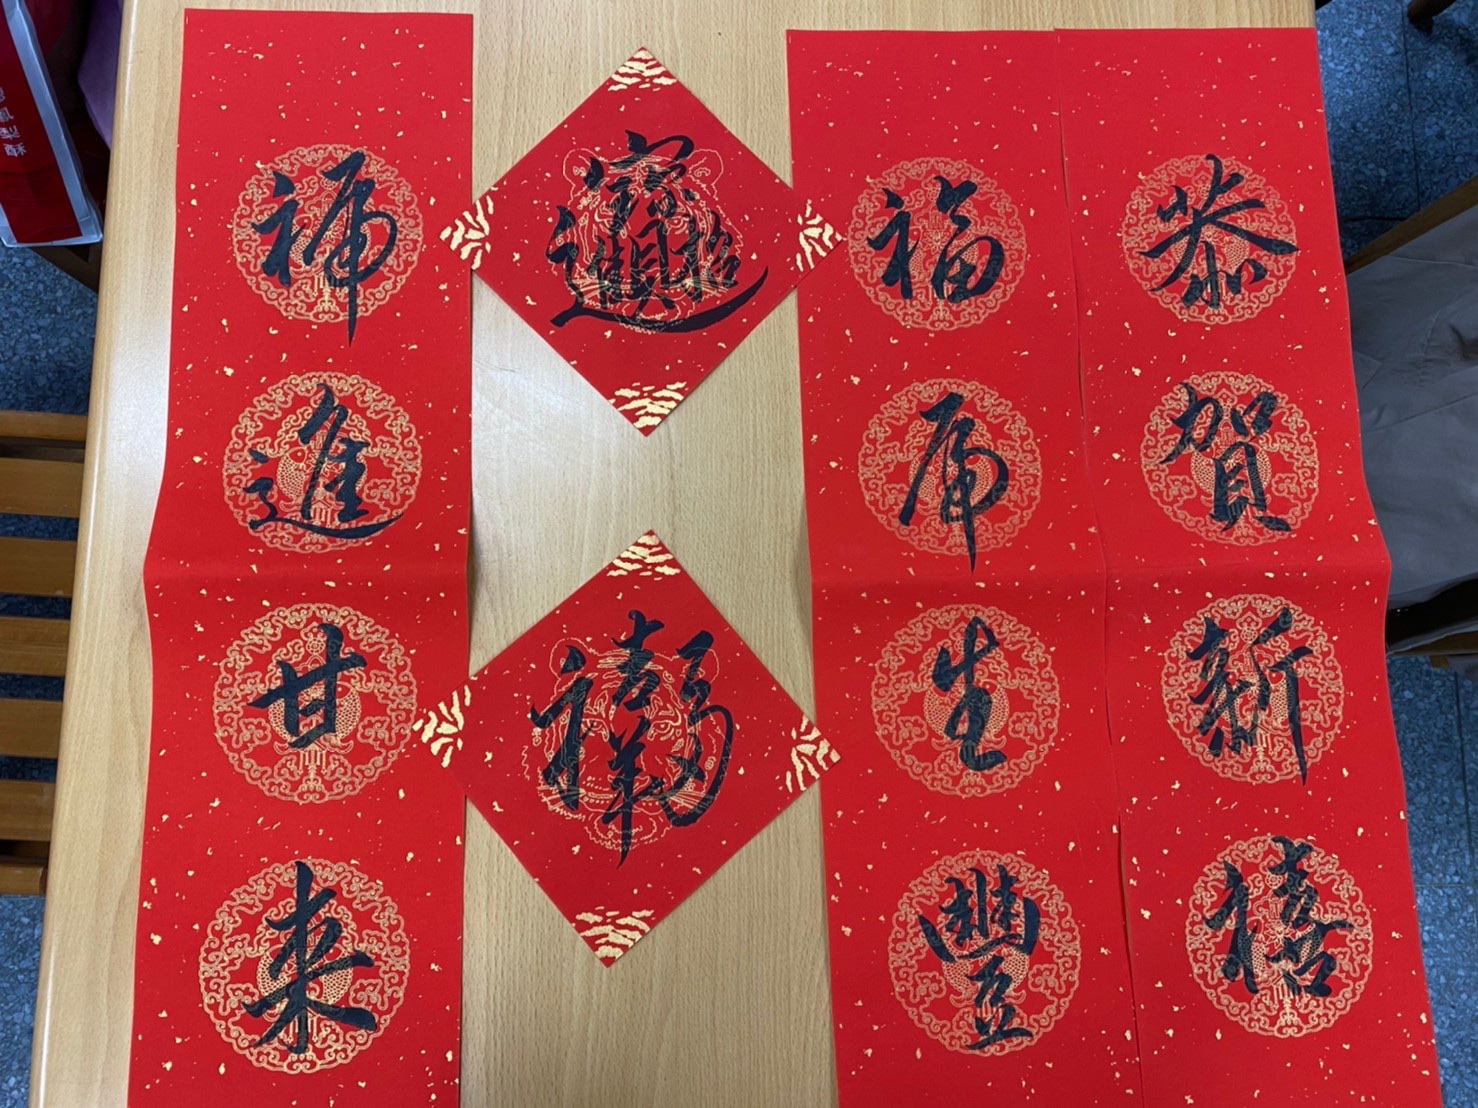 恭賀新禧
福虎生豐
招財進寶
吉祥
進甘來